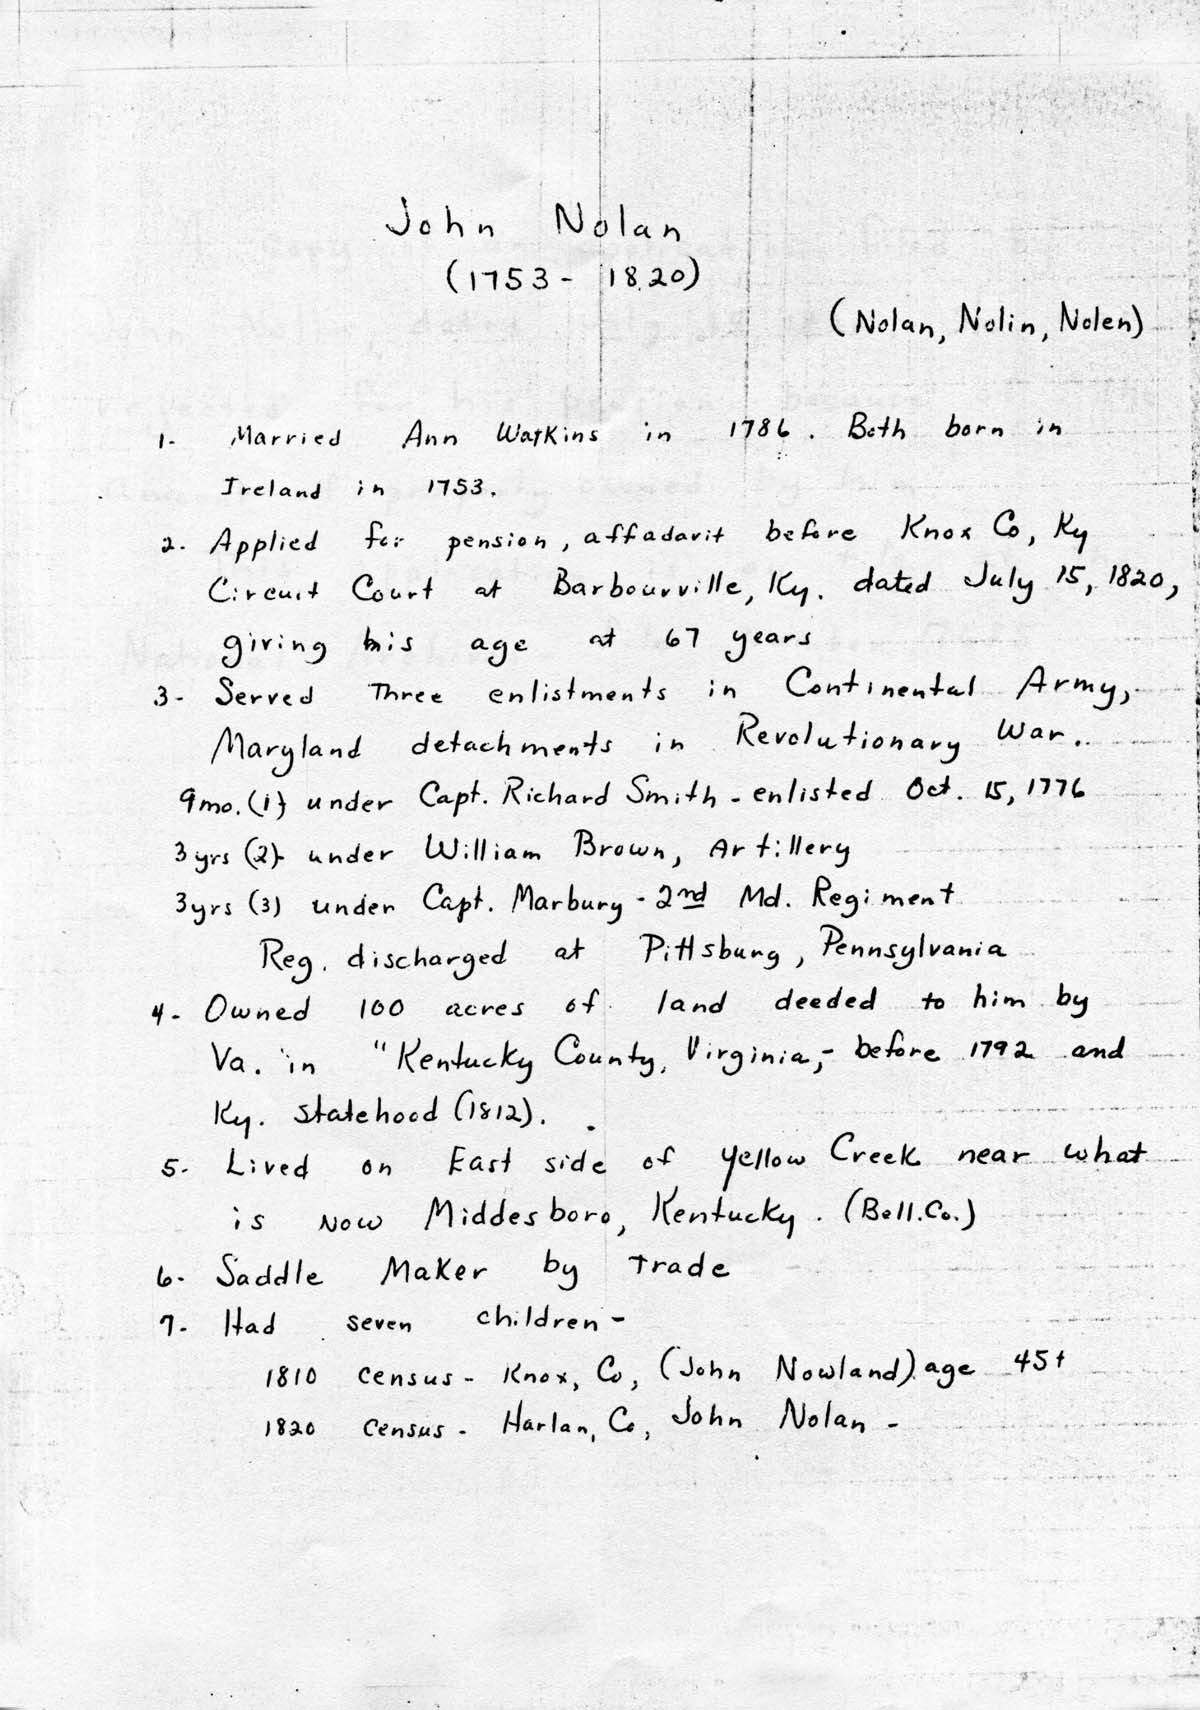 John Nolan
(1753 - 1820)
(Nolan, Nolin, Nolen)
1- Married Ann Watkins in 1786. Both born in
Ireland in 1753.
2. Applied for pension, affadavit before Knox Co, Ky
Circuit Court at Barbourville, Ky. dated July 15, 1820,
giving his age at 67 years
3- Served Three enlistments in Continental Army,
Maryland detachments in Revolutionary War.
9mo. (1) under Capt. Richard Smith - enlisted Oct. 15, 1776
3 yrs (2) under William Brown, Artillery
3yrs (3) under Capt. Marbury - 2nd Md. Regiment
Reg. discharged at Pittsburg, Pennsylvania
4- Owned 100 acres of land deeded to him by
Va. in "Kentucky County, Virginia,- before 1792 and
Ky. statehood (1812).
5- Lived on East side of Yellow Creek near what
is now Middesboro, Kentucky. (Bell.Co.)
6- Saddle Maker by Trade
7- Had seven children -
1810 census - Knox, Co, (John Nowland) age 45+
1820 census - Harlan, Co, John Nolan -